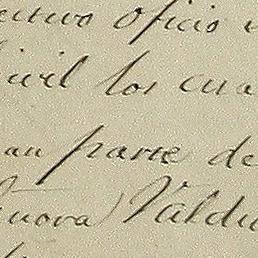 ectivo oficio
ivil los cua
an parte de
nuora Valdu